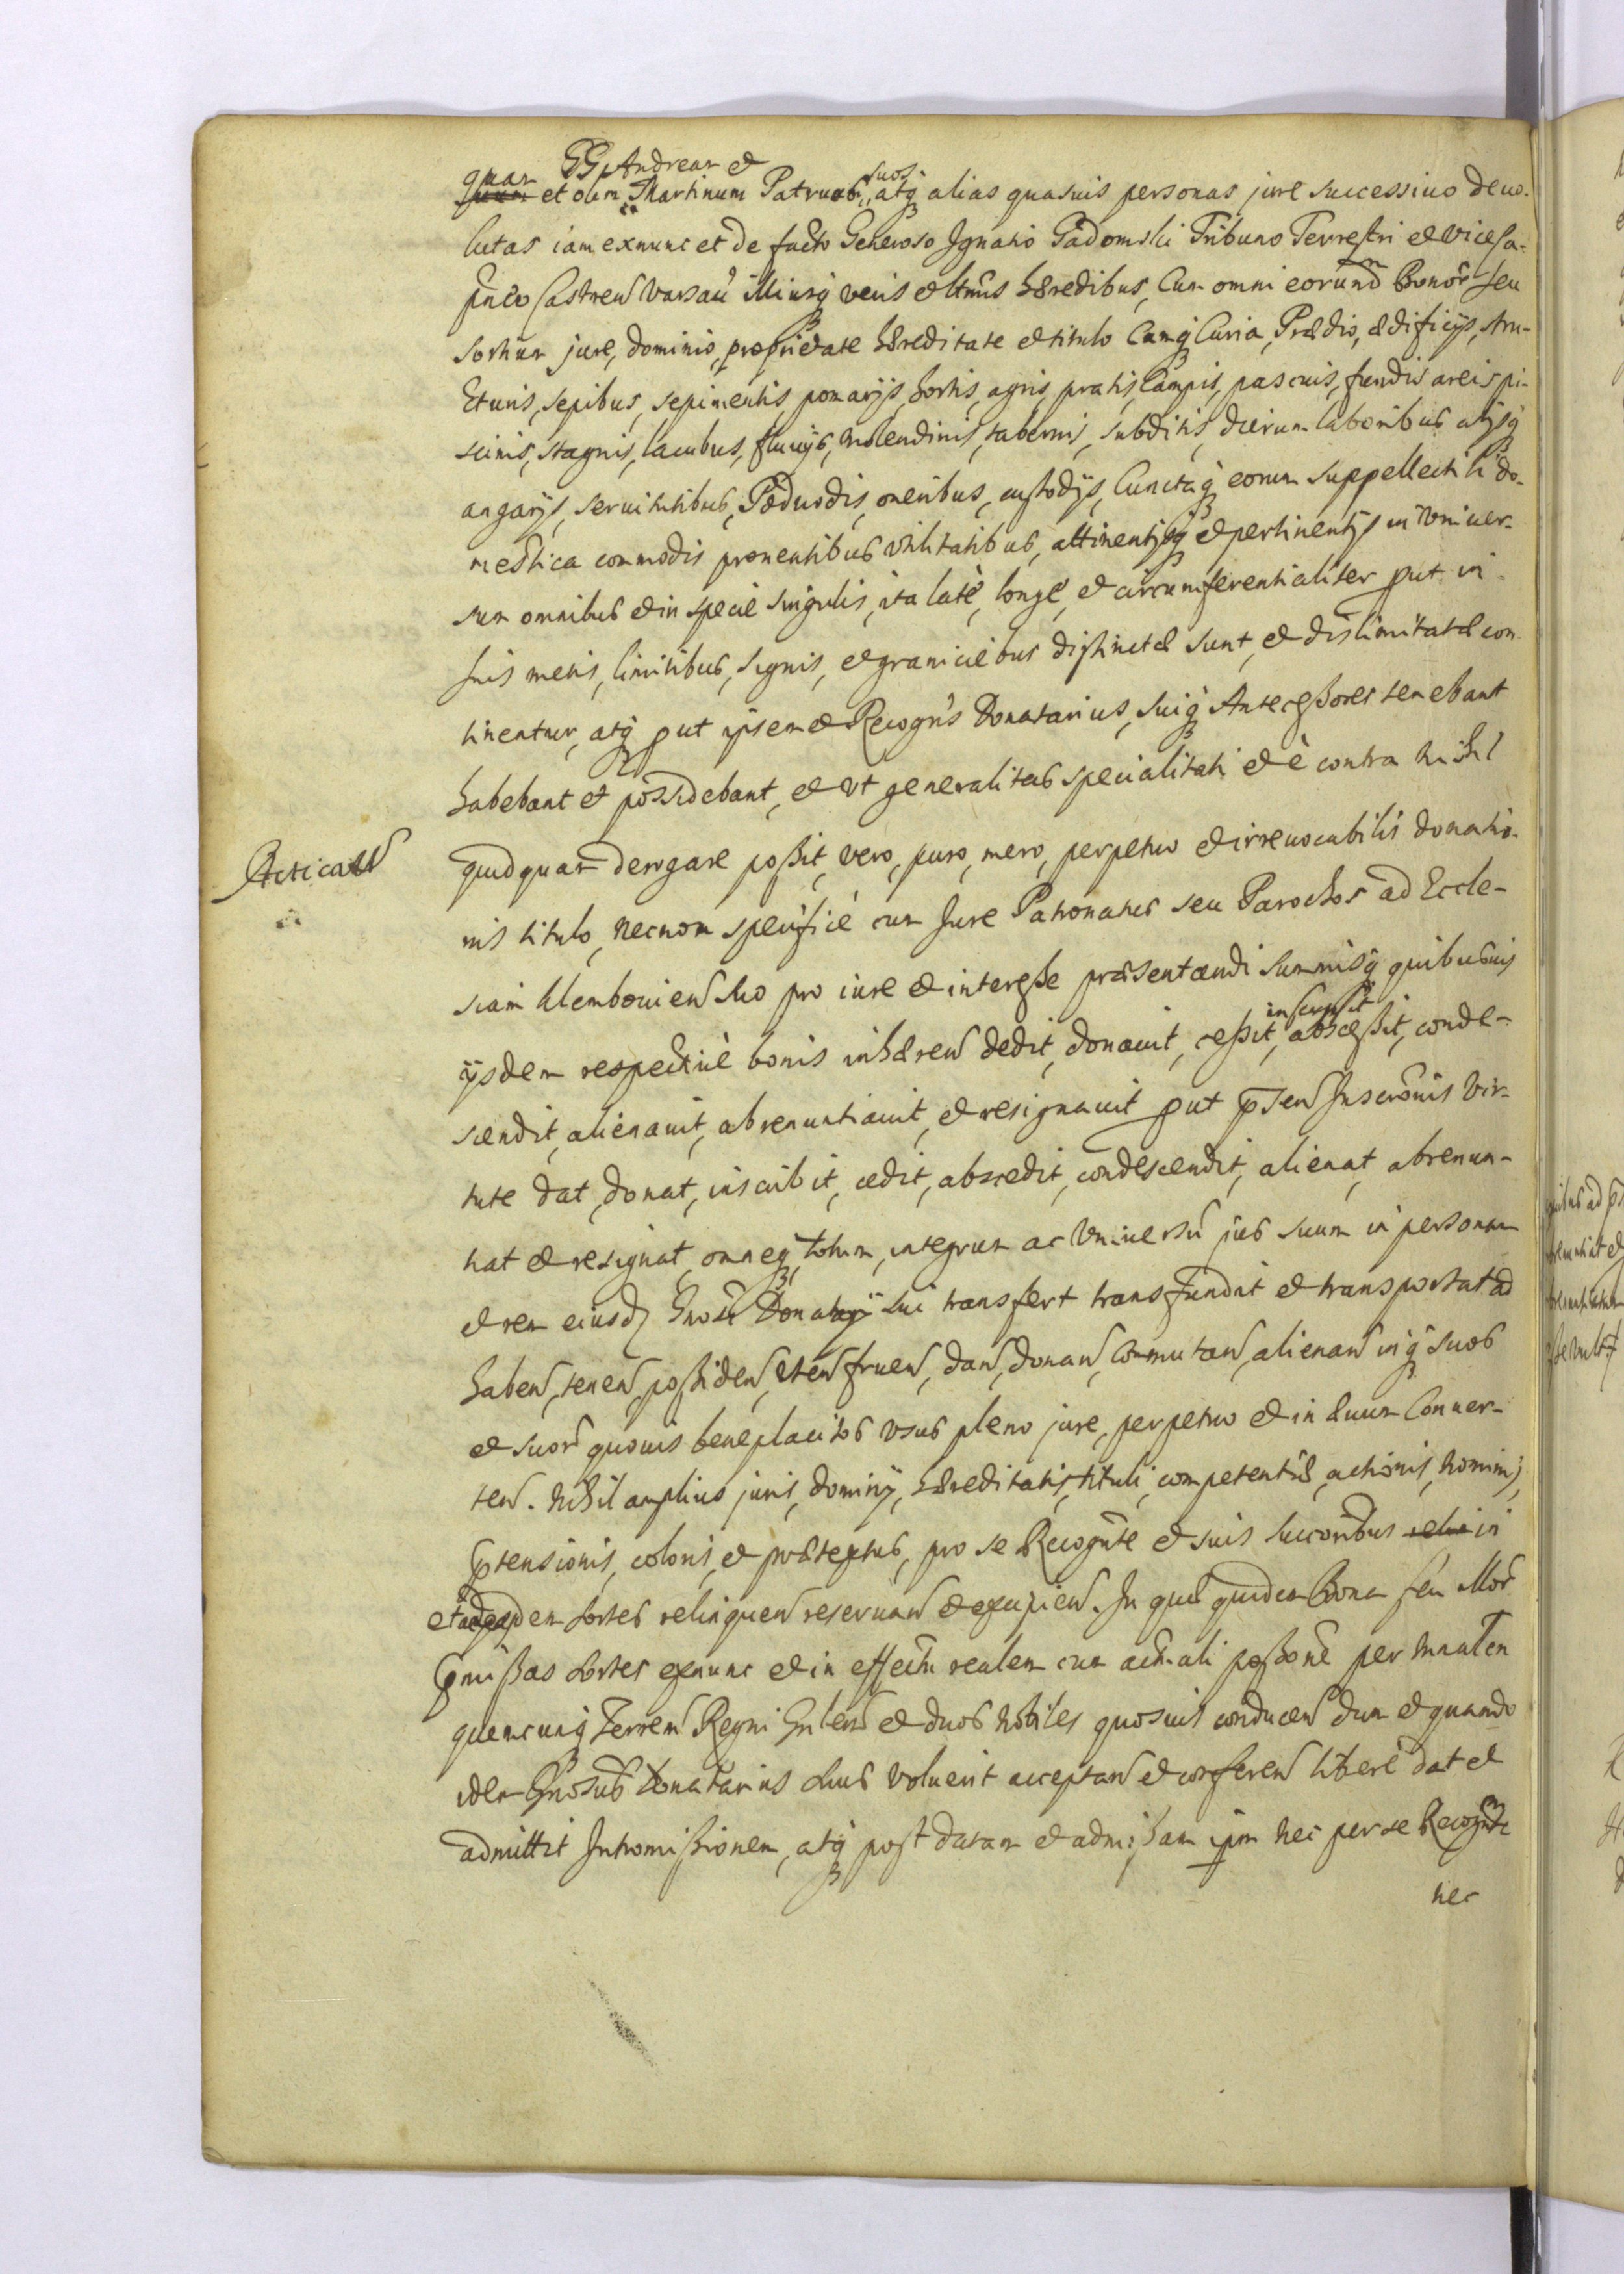 GG Andream et
quam et olim Martinum Patruos suos atq alias quasuis personas jure successiuo deuo-
lutas iam exnunc et de facto Generoso Ignatio Gadomski Tribuno Terrestri et Vice Ca-
Castren Varsau illiusq veris et ltmis hæredibus, Cum omni eorund Bonor seu
sortium jure, dominio, proprietate hæreditate et titulo Cumq Curia, Prædijs, ædificijs, stru-
cturis, sepibus, sepimentis, pomarijs, hortis, agris, pratis, Campis, pascuis, fundis areis pi-
scinis, stagnis, lacubus, fluuijs, molendinis, tabernis, subditis, dierum laboribus alijsq
angarijs, seruitutibus, Poduodis, oneribus, custodijs, Cunctaq eorum suppellectili do-
mestica commodis prouentibus vtilitatibus, attinentijsq et pertinentijs in vniuer-
sum omnibus et in specie singulis, ita latè, longè, et circumferentialiter put in
suis metis, limitibus, signis, et graniciebus distinctæ sunt, et dislimitatæ con
tinentur, atq put ipsemet Recogns Donatarius, suiq Antecessores tenebant
habebant et possidebant, et vt generalitas specialitati et è contra nihil
Acticatt
quidquam derogare possit, vero, puro, mero, perpetuo et irreuocabilis donatio-
nis titulo, necnon specificè cum Jure Patronatus seu Parochos ad Eccle-
siam Klembouien suo pro iure et interesse præsentandi summisq quibusuis
ijsdem respectiuè bonis inhæren dedit, donauit, cessit, inscripsit abscessit, conde-
scendit, alienauit, abrenuntiauit, et resignauit put psen Inscronis vir-
tute dat, donat, inscribit, cedit, abscedit, condescendit, alienat, abrenun-
tiat et resignat, omneq totum, integrum ac vniuersu jus suum in personam
et rem eiusd Gnosi Donatarij sui transfert transfundit et transportat ad
haben, tenen, possiden, vten fruen, dan, donan, Commutan, alienan inq suos
et suor quouis beneplacitos vsus pleno jure, perpetuo et in æuum Conuer-
ten. Nihil amplius juris, dominij, hæreditatis, tituli, competentiæ, actionis, nominis,
ptensionis, coloris, et prætextus, pro se Recognte et suis succoribus in
et ad easdem sortes relinquen reseruan et excipien. In quæ quidem Bona seu
pmissas sortes exnunc et in effectu realem cum actuali possone per
quemcunq Terren Regni Gnlem et duos Nobiles quosuis conducen dum et quando
idem Gnosus Donatarius suus voluerit acceptan et conferen liberè dat et
admittit Intromissionem, atq post datam et admissam ipm nec per se Recognte
nec